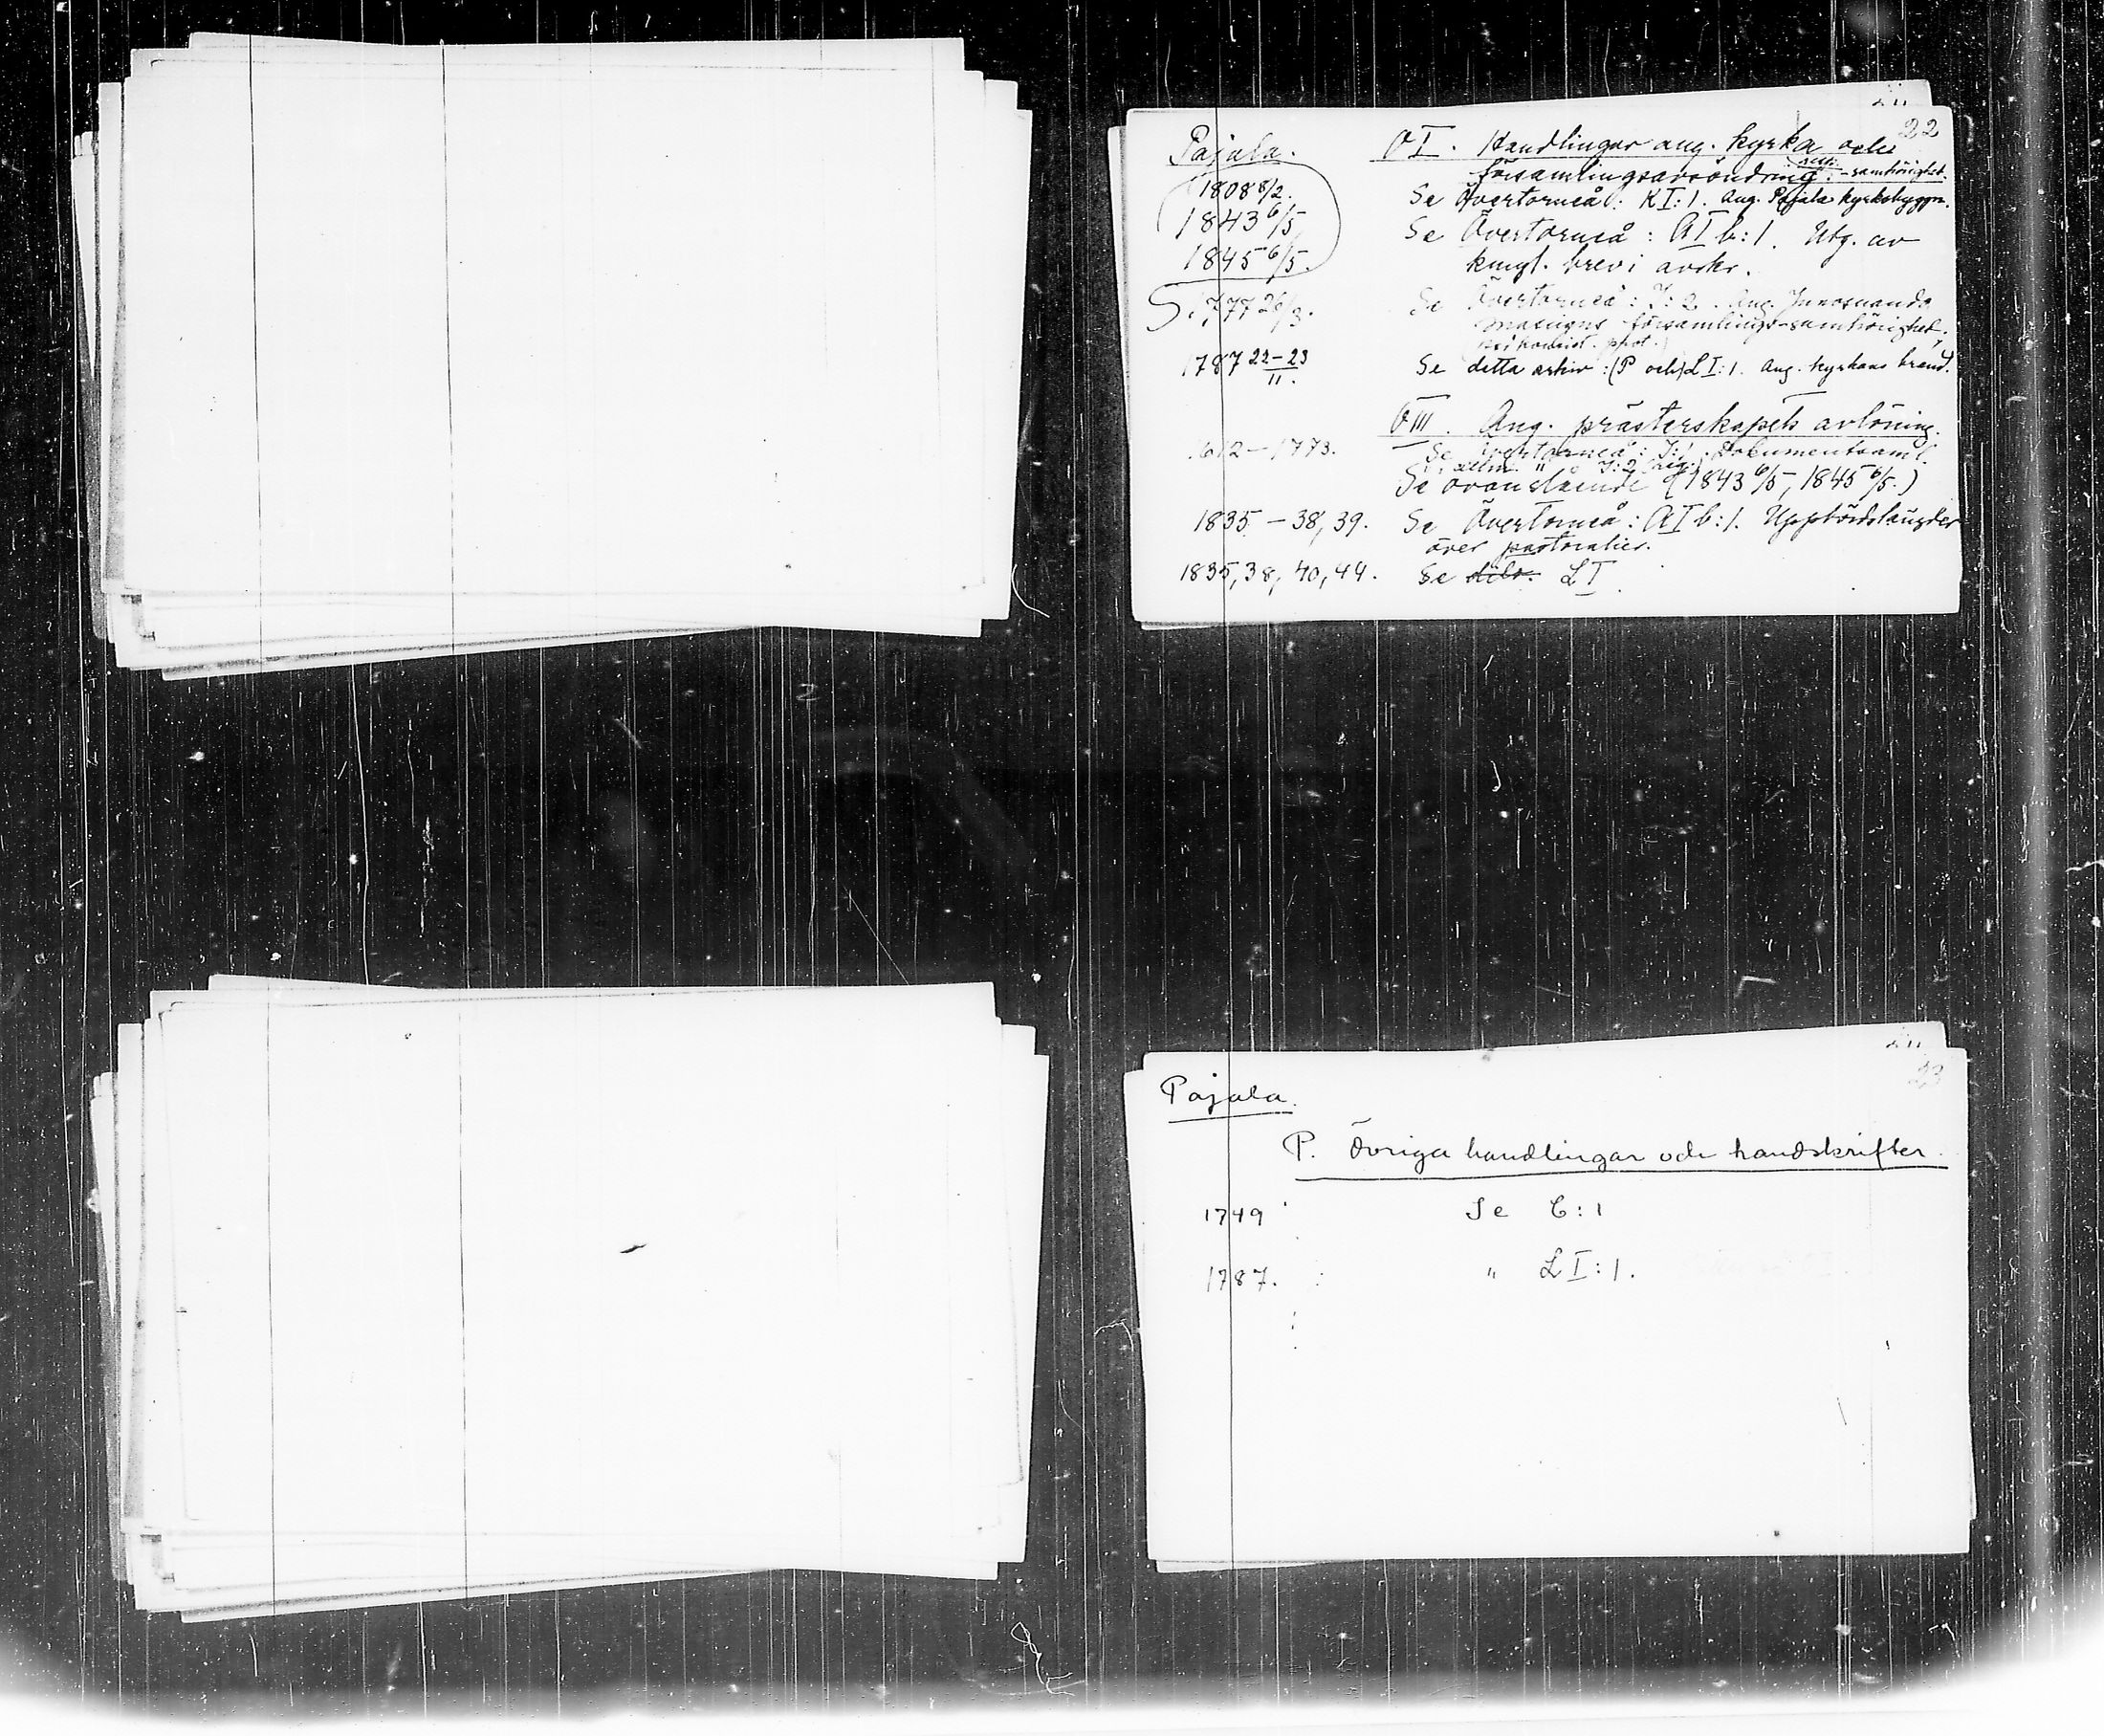 22
Pajala.
O I. Handlingar ang. kyrka och
församlingsavsöndring. -samhörighet.
1808 8/2. Se Övertorneå: K I:1. Ang. Pajala kyrkobyggn.
1843 6/5 Se Övertorneå: A I b:1. Utg. av
1845 6/5. kungl. brev i avskr.
1777 26/3. Se Övertorneå: J:2. Ang. Junosuando
församlings-samhörighet,
1787 22-23/11. Se detta arkiv: (P och) L I:1. Ang. kyrkans brand.
O III. Ang. prästerskapets avlöning.
1612-1773. Se Övertorneå: J:1. Dokumentsaml.
Se ovanstående (1843 6/5, 1845 6/5.)
1835-38, 39. Se Övertorneå: A I b:1. Uppbördslängder
över pastoralier.
1835, 38, 40, 44. Se L I.
23
Pajala.
P. Övriga handlingar och handskrifter.
1749 Se C:1
1787. " L I:1.